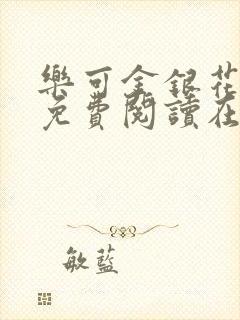 樂可金銀花
免費閱讀在
敏藍